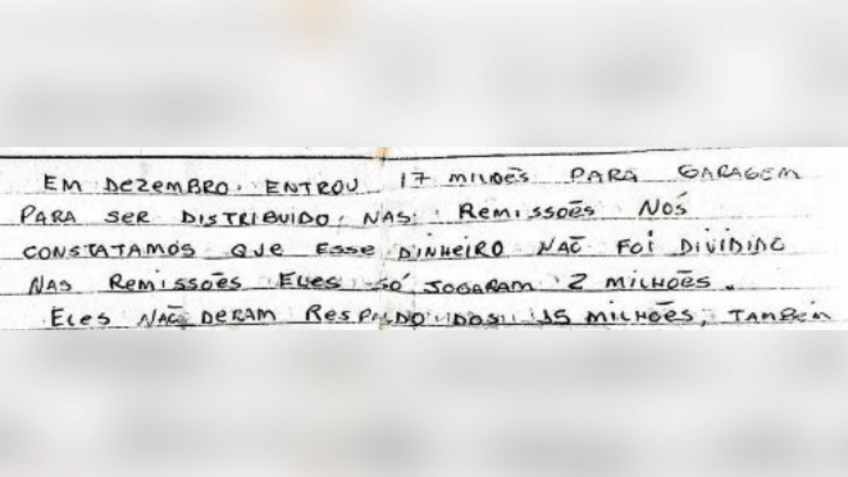 EM DEZEMBRO. ENTROU 17 MILÕES PARA GARAGEM
PARA SER DISTRIBUIDO NAS REMISSOES NÓS
CONSTATAMOS QUE ESSE DINHEIRO NAÕ FOI DIVIDIDO
NAS REMISSOES ELES SÓ JOGARAM 2 MILHÕES.
ELES NAÕ DERAM RESPALDO DOS 15 MILHÕES, TAMBÉM